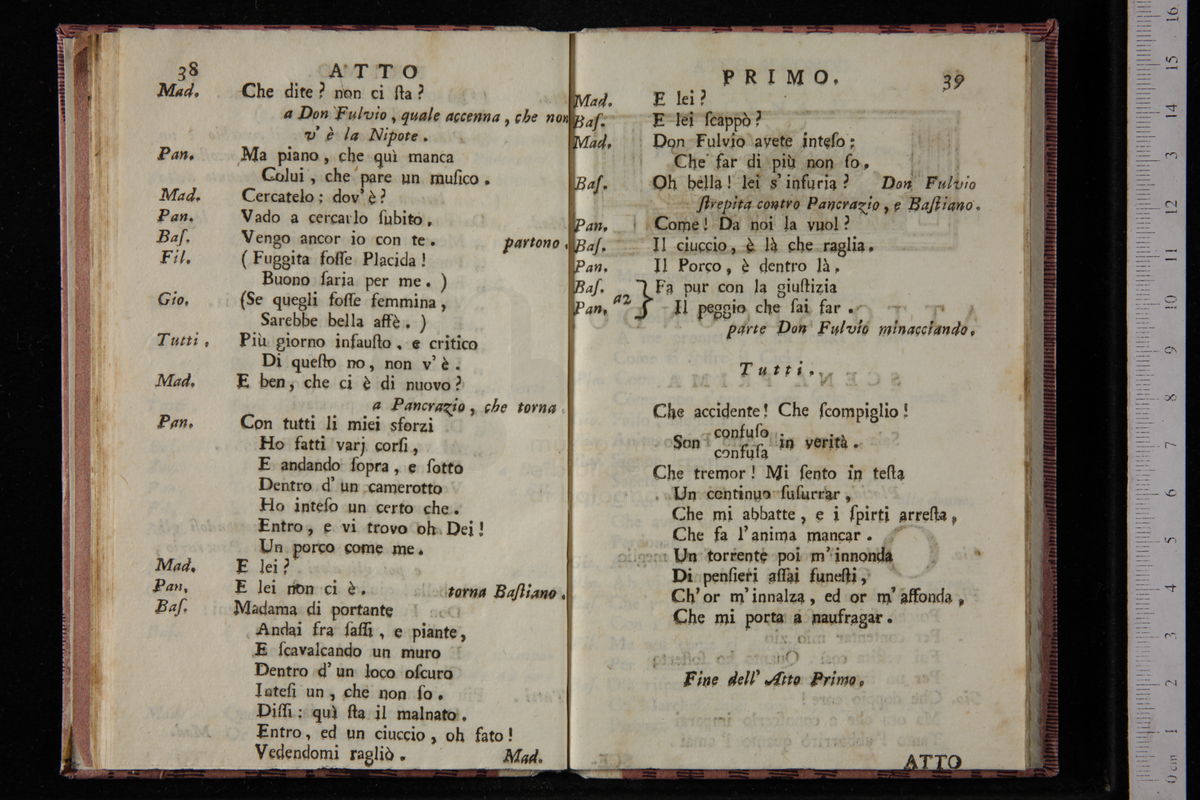 38 ATTO
Mad. Che dite? non ci ſta?
a Don Fulvio, quale accenna, che non
v' è la Nipote.
Pan. Ma piano, che quì manca
Colui, che pare un muſico.
Mad. Cercatelo; dov' è?
Pan. Vado a cercarlo ſubito.
Baſ. Vengo ancor io con te. partono.
Fil. (Fuggita foſſe Placida!
Buono ſaria per me.)
Gio. (Se quegli foſſe femmina,
Sarebbe bella affè.)
Tutti. Più giorno infauſto, e critico
Di queſto no, non v' è.
Mad. E ben, che ci è di nuovo?
a Pancrazio, che torna.
Pan. Con tutti li miei sforzi
Ho fatti varj corſi,
E andando ſopra, e ſotto
Dentro d' un camerotto
Ho inteſo un certo che.
Entro, e vi trovo oh Dei!
Un porco come me.
Mad. E lei?
Pan. E lei non ci è. torna Baſtiano.
Baſ. Madama di portante
Andai fra ſaſſi, e piante,
E ſcavalcando un muro
Dentro d' un loco oſcuro
Inteſi un, che non ſo.
Diſſi: quì ſta il malnato.
Entro, ed un ciuccio, oh fato!
Vedendomi ragliò. Mad.
PRIMO. 39
Mad. E lei?
Baſ. E lei ſcappò?
Mad. Don Fulvio avete inteſo:
Che far di più non ſo.
Baſ. Oh bella! lei s' infuria? Don Fulvio
ſtrepita contro Pancrazio, e Baſtiano.
Pan. Come! Da noi la vuol?
Baſ. Il ciuccio, è là che raglia.
Pan. Il Porco, è dentro là.
Baſ. Fa pur con la giuſtizia
Pan. a2 Il peggio che ſai far.
parte Don Fulvio minacciando.
Tutti.
Che accidente! Che ſcompiglio!
Son confuſo
confuſa in verità.
Che tremor! Mi ſento in teſta
Un continuo ſuſurrar,
Che mi abbatte, e i ſpirti arreſta,
Che fa l'anima mancar.
Un torrente poi m' innonda
Di penſieri aſſai funeſti,
Ch'or m'innalza, ed or m'affonda,
Che mi porta a naufragar.
Fine dell' Atto Primo.
ATTO
16
15
14
13
12
11
10
9
8
7
6
5
4
3
2
1
0 cm